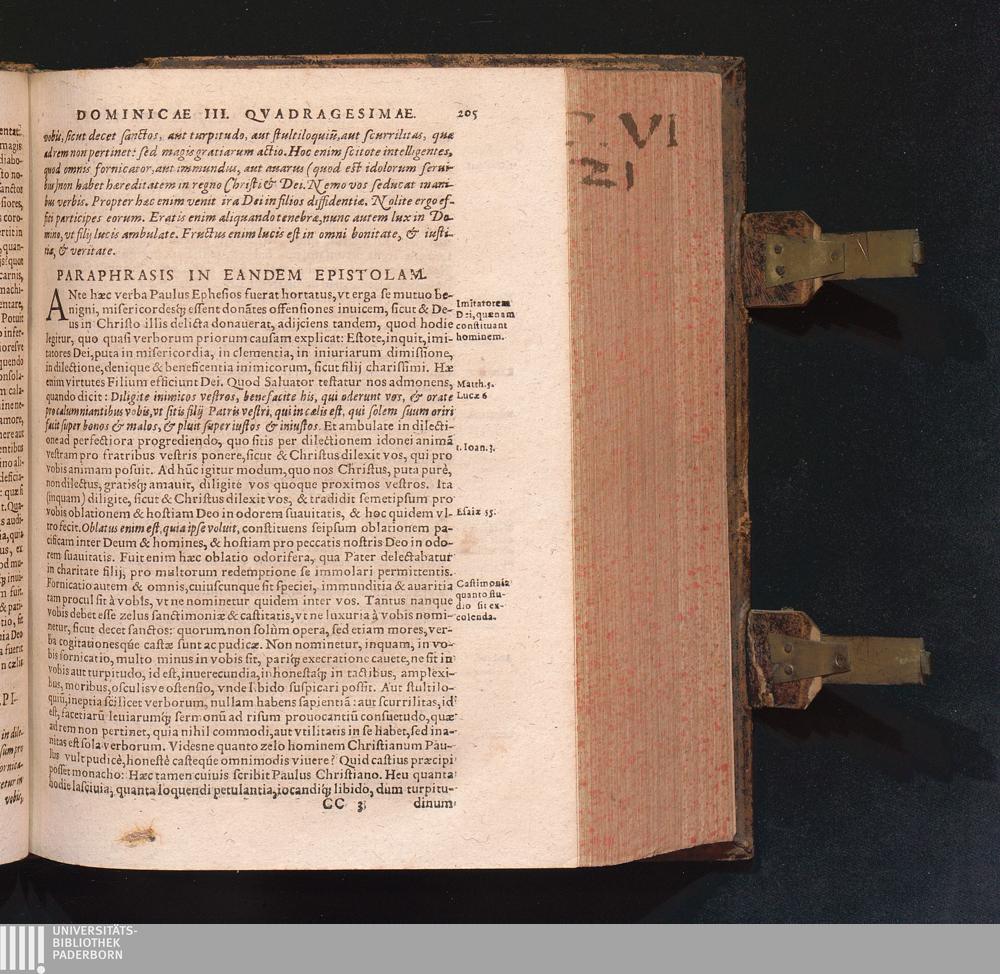 DOMINICAE III. QVADRAGESIMAE. 205
vobis, sicut decet sanctos, aut turpitudo, aut stultiloquiũ, aut scurrilitas, quæ
ad rem non pertinet: sed magis gratiarum actio. Hoc enim scitote intelligentes,
quod omnis fornicator, aut immundus, aut auarus (quod est idolorum serui-
bus) non habet hæreditatem in regno Christi & Dei. Nemo vos seducat inani-
bus verbis. Propter hæc enim venit ira Dei in filios diffidentiæ. Nolite ergo ef-
fici participes eorum. Eratis enim aliquando tenebræ, nunc autem lux in Do-
mino, vt filij lucis ambulate. Fructus enim lucis est in omni bonitate, & iusti-
tia, & veritate.
PARAPHRASIS IN EANDEM EPISTOLAM.
ANte hæc verba Paulus Ephesios fuerat hortatus, vt erga se mutuo be-
nigni, misericordesq́; essent donãtes offensiones inuicem, sicut & De-
us in Christo illis delicta donauerat, adijciens tandem, quod hodie
legitur, quo quasi verborum priorum causam explicat: Estote, inquit, imi-
tatores Dei, puta in misericordia, in clementia, in iniuriarum dimissione,
in dilectione, denique & beneficentia inimicorum, sicut filij charissimi. Hæ
enim virtutes Filium efficiunt Dei. Quod Saluator testatur nos admonens,
quando dicit: Diligite inimicos vestros, benefacite his, qui oderunt vos, & orate
pro calumniantibus vobis, vt sitis filij Patris vestri, qui in cælis est, qui solem suum oriri
facit super bonos & malos, & pluit super iustos & iniustos. Et ambulate in dilecti-
one ad perfectiora progrediendo, quo sitis per dilectionem idonei animã
vestram pro fratribus vestris ponere, sicut & Christus dilexit vos, qui pro
vobis animam posuit. Ad hũc igitur modum, quo nos Christus, puta purè,
non dilectus, gratisq́; amauit, diligite vos quoque proximos vestros. Ita
(inquam) diligite, sicut & Christus dilexit vos, & tradidit semetipsum pro
vobis oblationem & hostiam Deo in odorem suauitatis, & hoc quidem vl-
tro fecit. Oblatus enim est, quia ipse voluit, constituens seipsum oblationem pa-
cificam inter Deum & homines, & hostiam pro peccatis nostris Deo in odo-
rem suauitatis. Fuit enim hæc oblatio odorifera, qua Pater delectabatur
in charitate filij, pro multorum redemptione se immolari permittentis.
Fornicatio autem & omnis, cuiuscunque sit speciei, immunditia & auaritia
tam procul sit à vobis, vt ne nominetur quidem inter vos. Tantus nanque
vobis debet esse zelus sanctimoniæ & castitatis, vt ne luxuria à vobis nomi-
netur, sicut decet sanctos: quorum non solùm opera, sed etiam mores, ver-
ba cogitationesque castæ sunt ac pudicæ. Non nominetur, inquam, in vo-
bis fornicatio, multo minus in vobis sit, pariq́; execratione cauete, ne sit in
vobis aut turpitudo, id est, inuerecundia, inhonestaq́; in tactibus, amplexi-
bus, moribus, osculisve ostensio, vnde libido suspicari possit. Aut stultilo-
quiũ, ineptia scilicet verborum, nullam habens sapientiã: aut scurrilitas, id
est, facetiarũ leuiarumq́; sermonũ ad risum prouocantiũ consuetudo, quæ
ad rem non pertinet, quia nihil commodi, aut vtilitatis in se habet, sed ina-
nitas est sola verborum. Videsne quanto zelo hominem Christianum Pau-
lus vult pudicè, honestè casteque omnimodis viuere? Quid castius præcipi
posset monacho: Hæc tamen cuiuis scribit Paulus Christiano. Heu quanta
hodie lasciuia, quanta loquendi petulantia, iocandiq́; libido, dum turpitu-
CC 3 dinum
Imitatorem
Dei, quænam
constituant
hominem.
Matth. 5.
Lucæ 6
1. Ioan. 3.
Esaiæ 53.
Castimonia
quanto stu-
dio sit ex-
colenda.
VI
21
UNIVERSITÄTS-
BIBLIOTHEK
PADERBORN